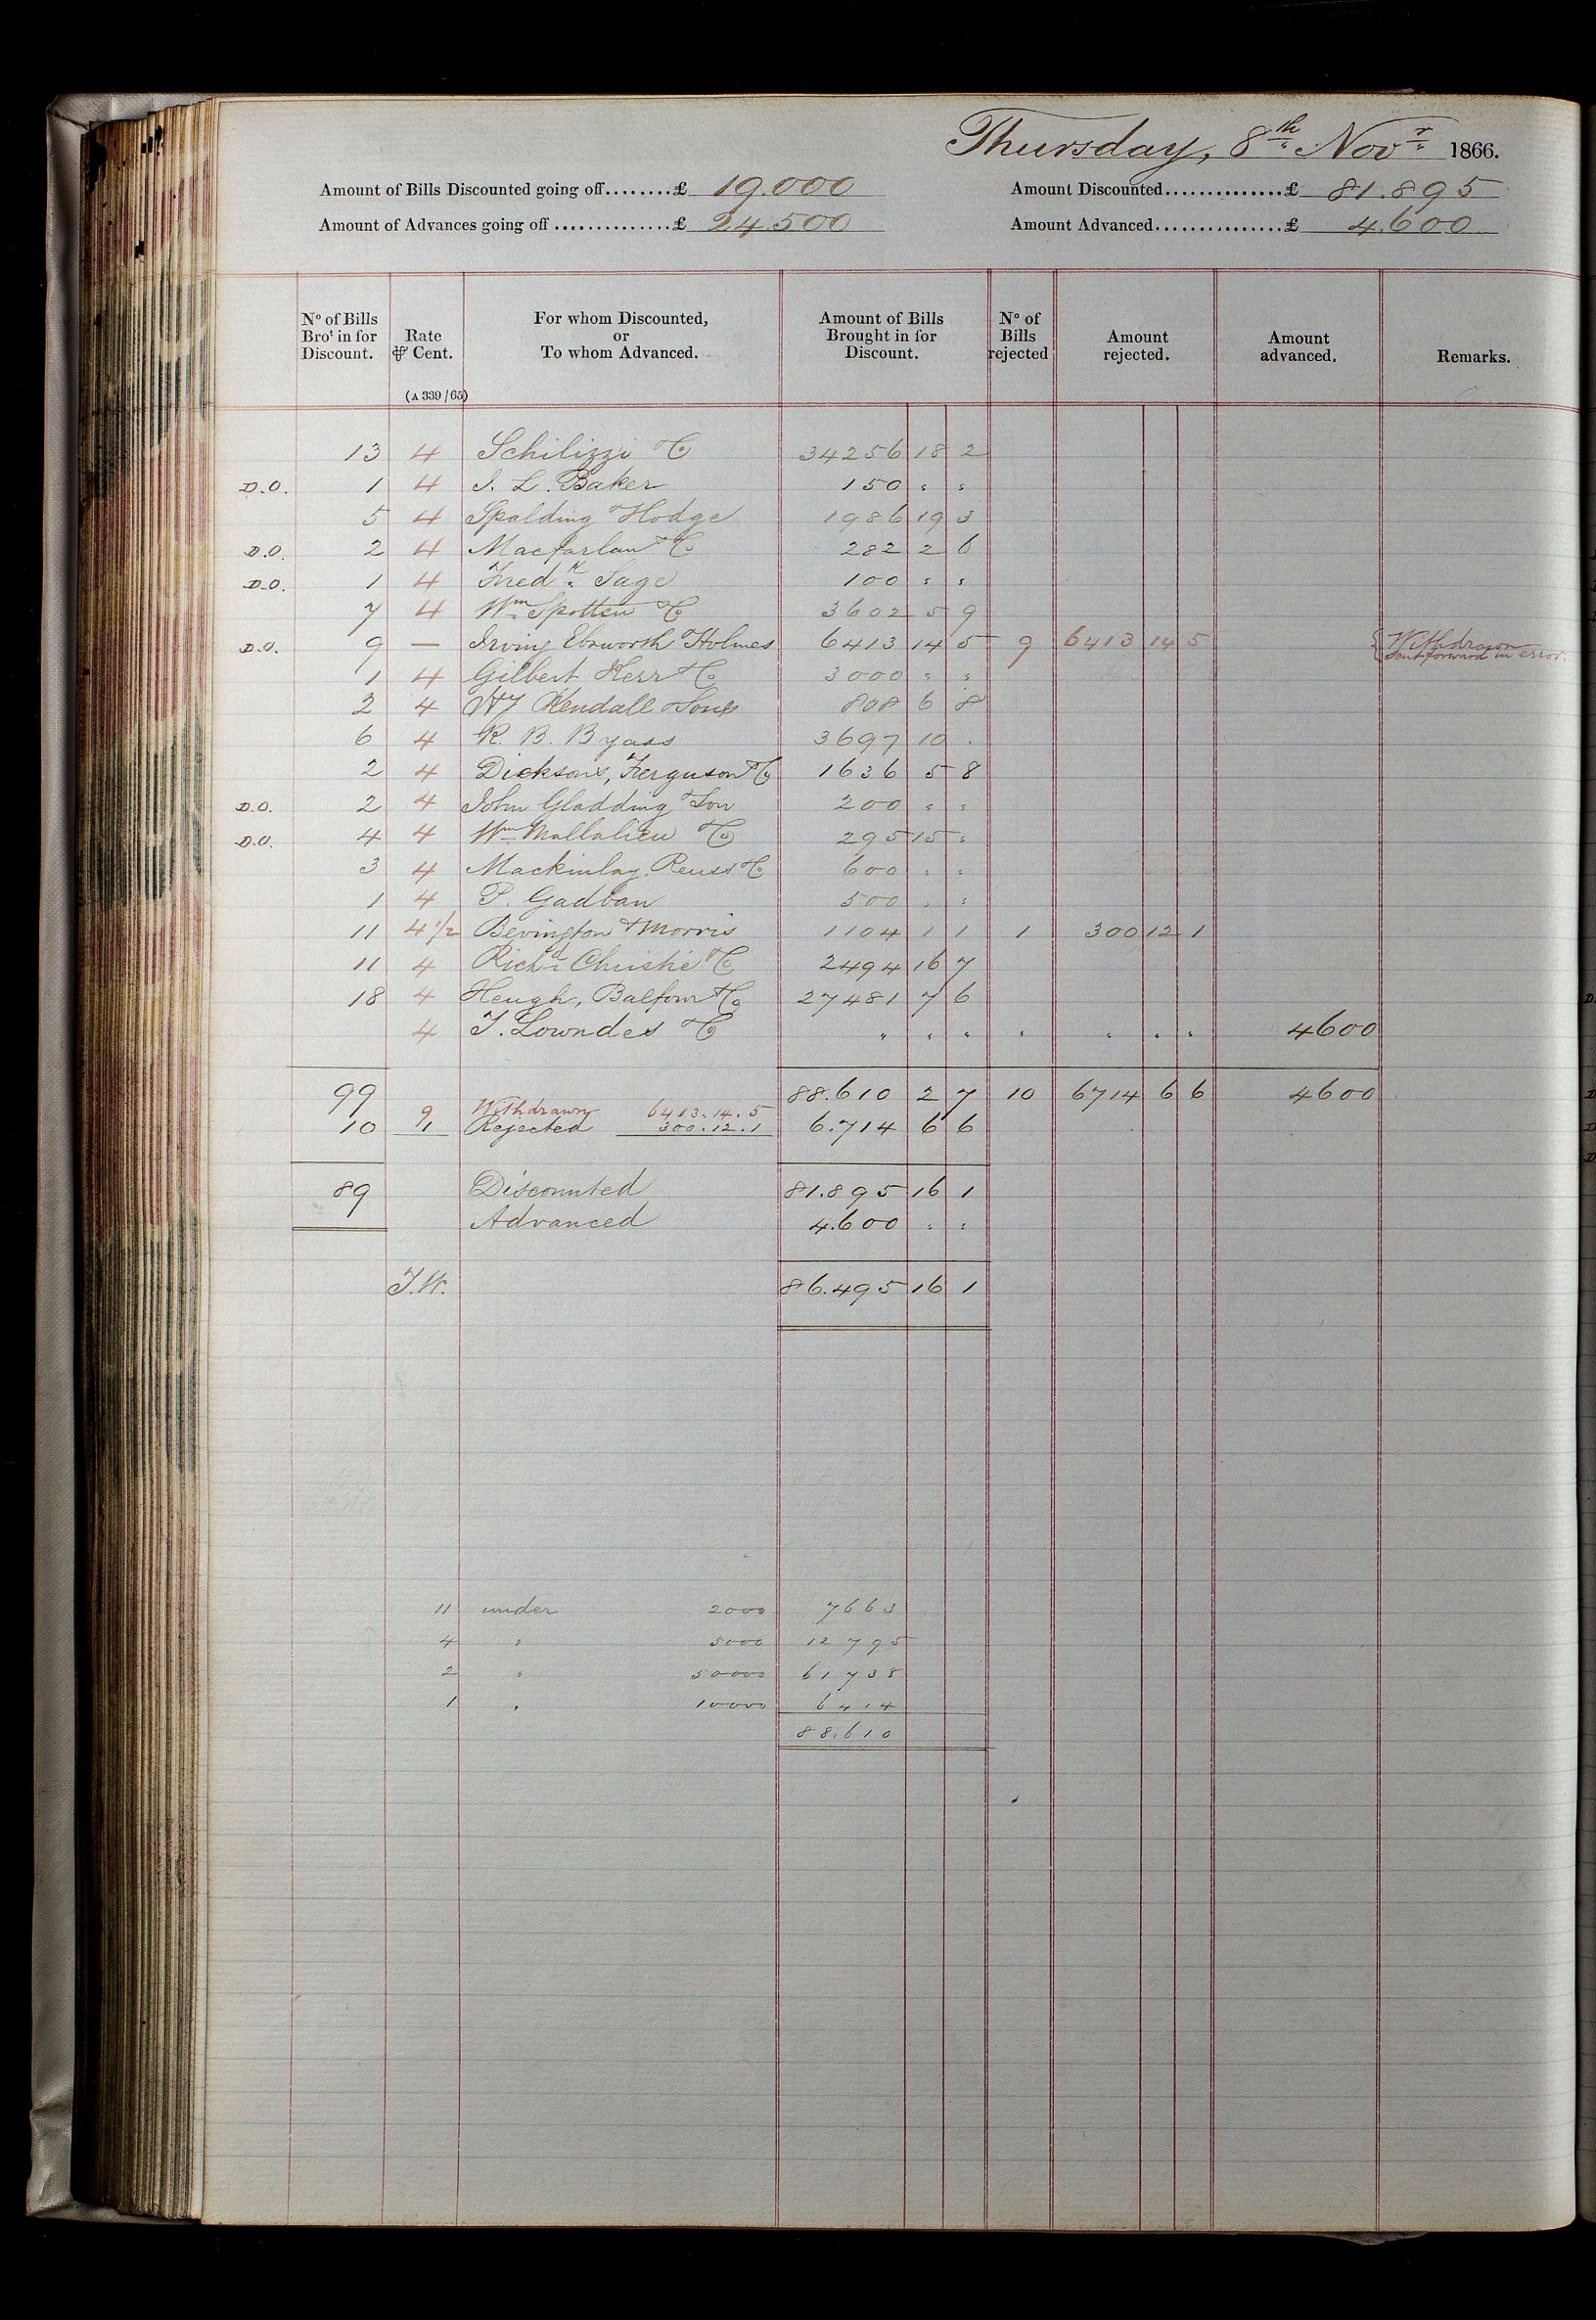 Thursday, 8th Novr 1866.
Amount of Bills Discounted going off........£ 19.000 Amount Discounted...............£ 81.895
Amount of Advances going off ..............£ 24.500 Amount Advanced................£ 4.600
No of Bills Brot in for Discount. Rate ⅌ Cent. (A 339/65) For whom Discounted, or To whom Advanced. Amount of Bills Brought in for Discount. No of Bills rejected Amount rejected. Amount advanced. Remarks.
13 4 Schilizzi & Co 34256 18 2
D.O. 1 4 I. L. Baker 150 " "
5 4 Spalding & Hodge 1986 19 3
D.O. 2 4 Macfarlan & Co 282 2 6
D.O. 1 4 Fredk Sage 100 " "
7 4 Wm Spotten & Co 3602 5 9
D.O. 9 — Irving Ebsworth & Holmes 6413 14 5 9 6413 14 5 { Withdrawn
sent forward in error.
1 4 Gilbert Kerr & Co 3000 " "
2 4 Kendall & Sons 808 6 8
6 4 R. B. Byass 3697 10 .
2 4 Dicksons, Ferguson & Co 1636 5 8
D.O. 2 4 John Gladding & Son 200 " "
D.O. 4 4 Wm Mallalieu & Co 295 15 "
3 4 Mackinlay, Reuss & Co 600 " "
1 4 P. Gadban 500 " "
11 4 1/2 Bevington & Morris 1104 1 1 1 300 12 1
11 4 Richd Christie & Co 2494 16 7
18 4 Heugh, Balfour & Co 27481 7 6
4 T. Lowndes & Co " " " " " " " 4600
99 88.610 2 7 10 6714 6 6 4600
9 Withdrawn 6413.14.5
10 1 Rejected 300.12.1 6.714 6 6
89 Discounted 81.895 16 1
Advanced 4.600 " "
J.W. 86.495 16 1
11 under 2000 7663
4 " 5000 12795
2 " 50000 61738
1 " 10000 6414
88.610